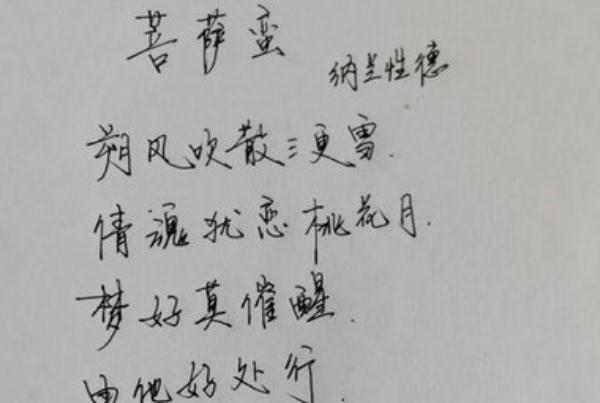 菩萨蛮
纳兰性德
朔风吹散三更雪.
倩魂犹恋桃花月.
梦好莫催醒.
由他好处行.